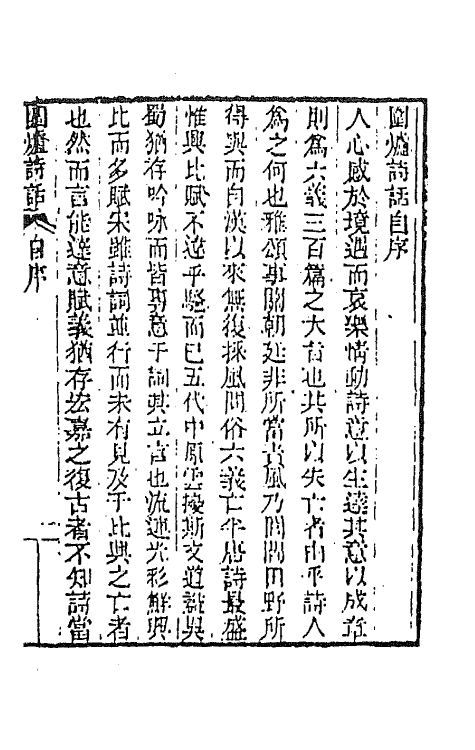 圍爐詩話自序
人心感於境遇而哀樂情動詩意以生達其意以成章
則為六義三百篇之大旨也其所以失亡者由乎詩人
為之何也雅頌事關朝廷非所當責風乃閭閻田野所
得與而自漢以來無復採風問俗六義亡半唐詩最盛
惟興比賦不違乎騷而已五代中原雲擾斯文道喪吳
蜀猶存吟咏而皆專意于詞其立言也流連光彩鮮興
比而多賦宋雖詩詞並行而未有見及于比興之亡者
也然而言能達意賦義猶存宏嘉之復古者不知詩當
圍爐詩話 自序 一